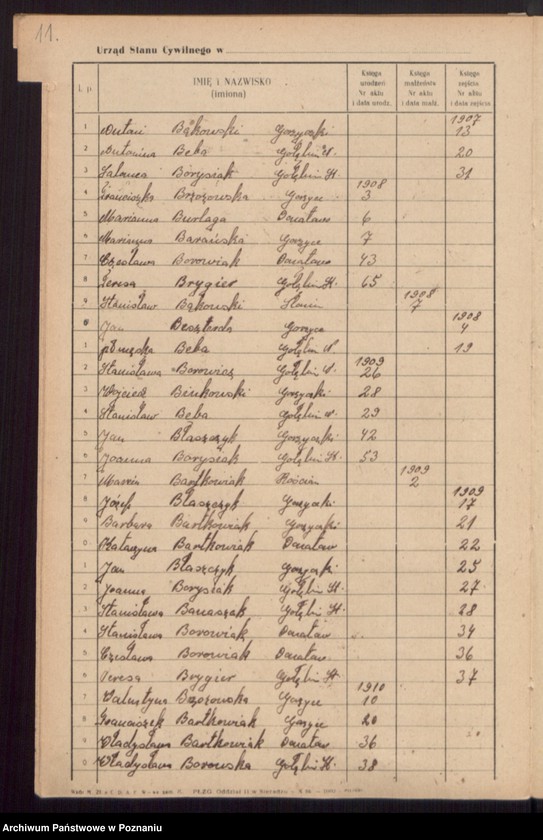 11.
Urząd Stanu Cywilnego w
L. p. IMIĘ i NAZWISKO (imiona) Księga urodzeń Nr aktu i data urodz. Księga małżeństw Nr aktu i data małż. Księga zejścia Nr aktu i data zejścia
1907
1 Antoni Bąkowski Gorzyczki 13
2 Antonina Beba Gołębin N. 20
3 Salomea Borysiak Gołębin St. 31
1908
4 Franciszka Brzozowska Gorzyce 3
5 Marianna Burlaga Donatowo 6
6 Marianna Barańska Gorzyce 7
7 Czesława Borowiak Donatowo 43
8 Teresa Brygier Gołębin St. 65
1908
9 Stanisław Bąkowski Słonin 7
1908
0 Jan Beszterda Gorzyce 4
1 Beba Gołębin N. 19
1909
2 Stanisława Borowicz Gołębin N. 26
3 Wojciech Binkowski Gorzyczki 28
4 Stanisław Beba Gołębin N. 29
5 Jan Błaszczyk Gorzyczki 42
6 Joanna Borysiak Gołębin St. 53
1909
7 Marcin Bartkowiak Kościan 2
1909
8 Józef Błaszczyk Gorzyczki 17
9 Barbara Bartkowiak Gorzyczki 21
0 Katarzyna Bartkowiak Donatowo 22
1 Jan Błaszczyk Gorzyczki 25
2 Joanna Borysiak Gołębin St. 27
3 Stanisława Banaszak Gołębin St. 28
4 Stanisława Borowiak Donatowo 34
5 Czesława Borowiak Donatowo 36
6 Teresa Brygier Gołębin St. 37
1910
7 Walentyna Brzozowska Gorzyce 10
8 Franciszek Bartkowiak Gorzyce 20
9 Władysława Bartkowiak Donatowo 36
0 Władysława Borowska Gołębin St. 38
Archiwum Państwowe w Poznaniu